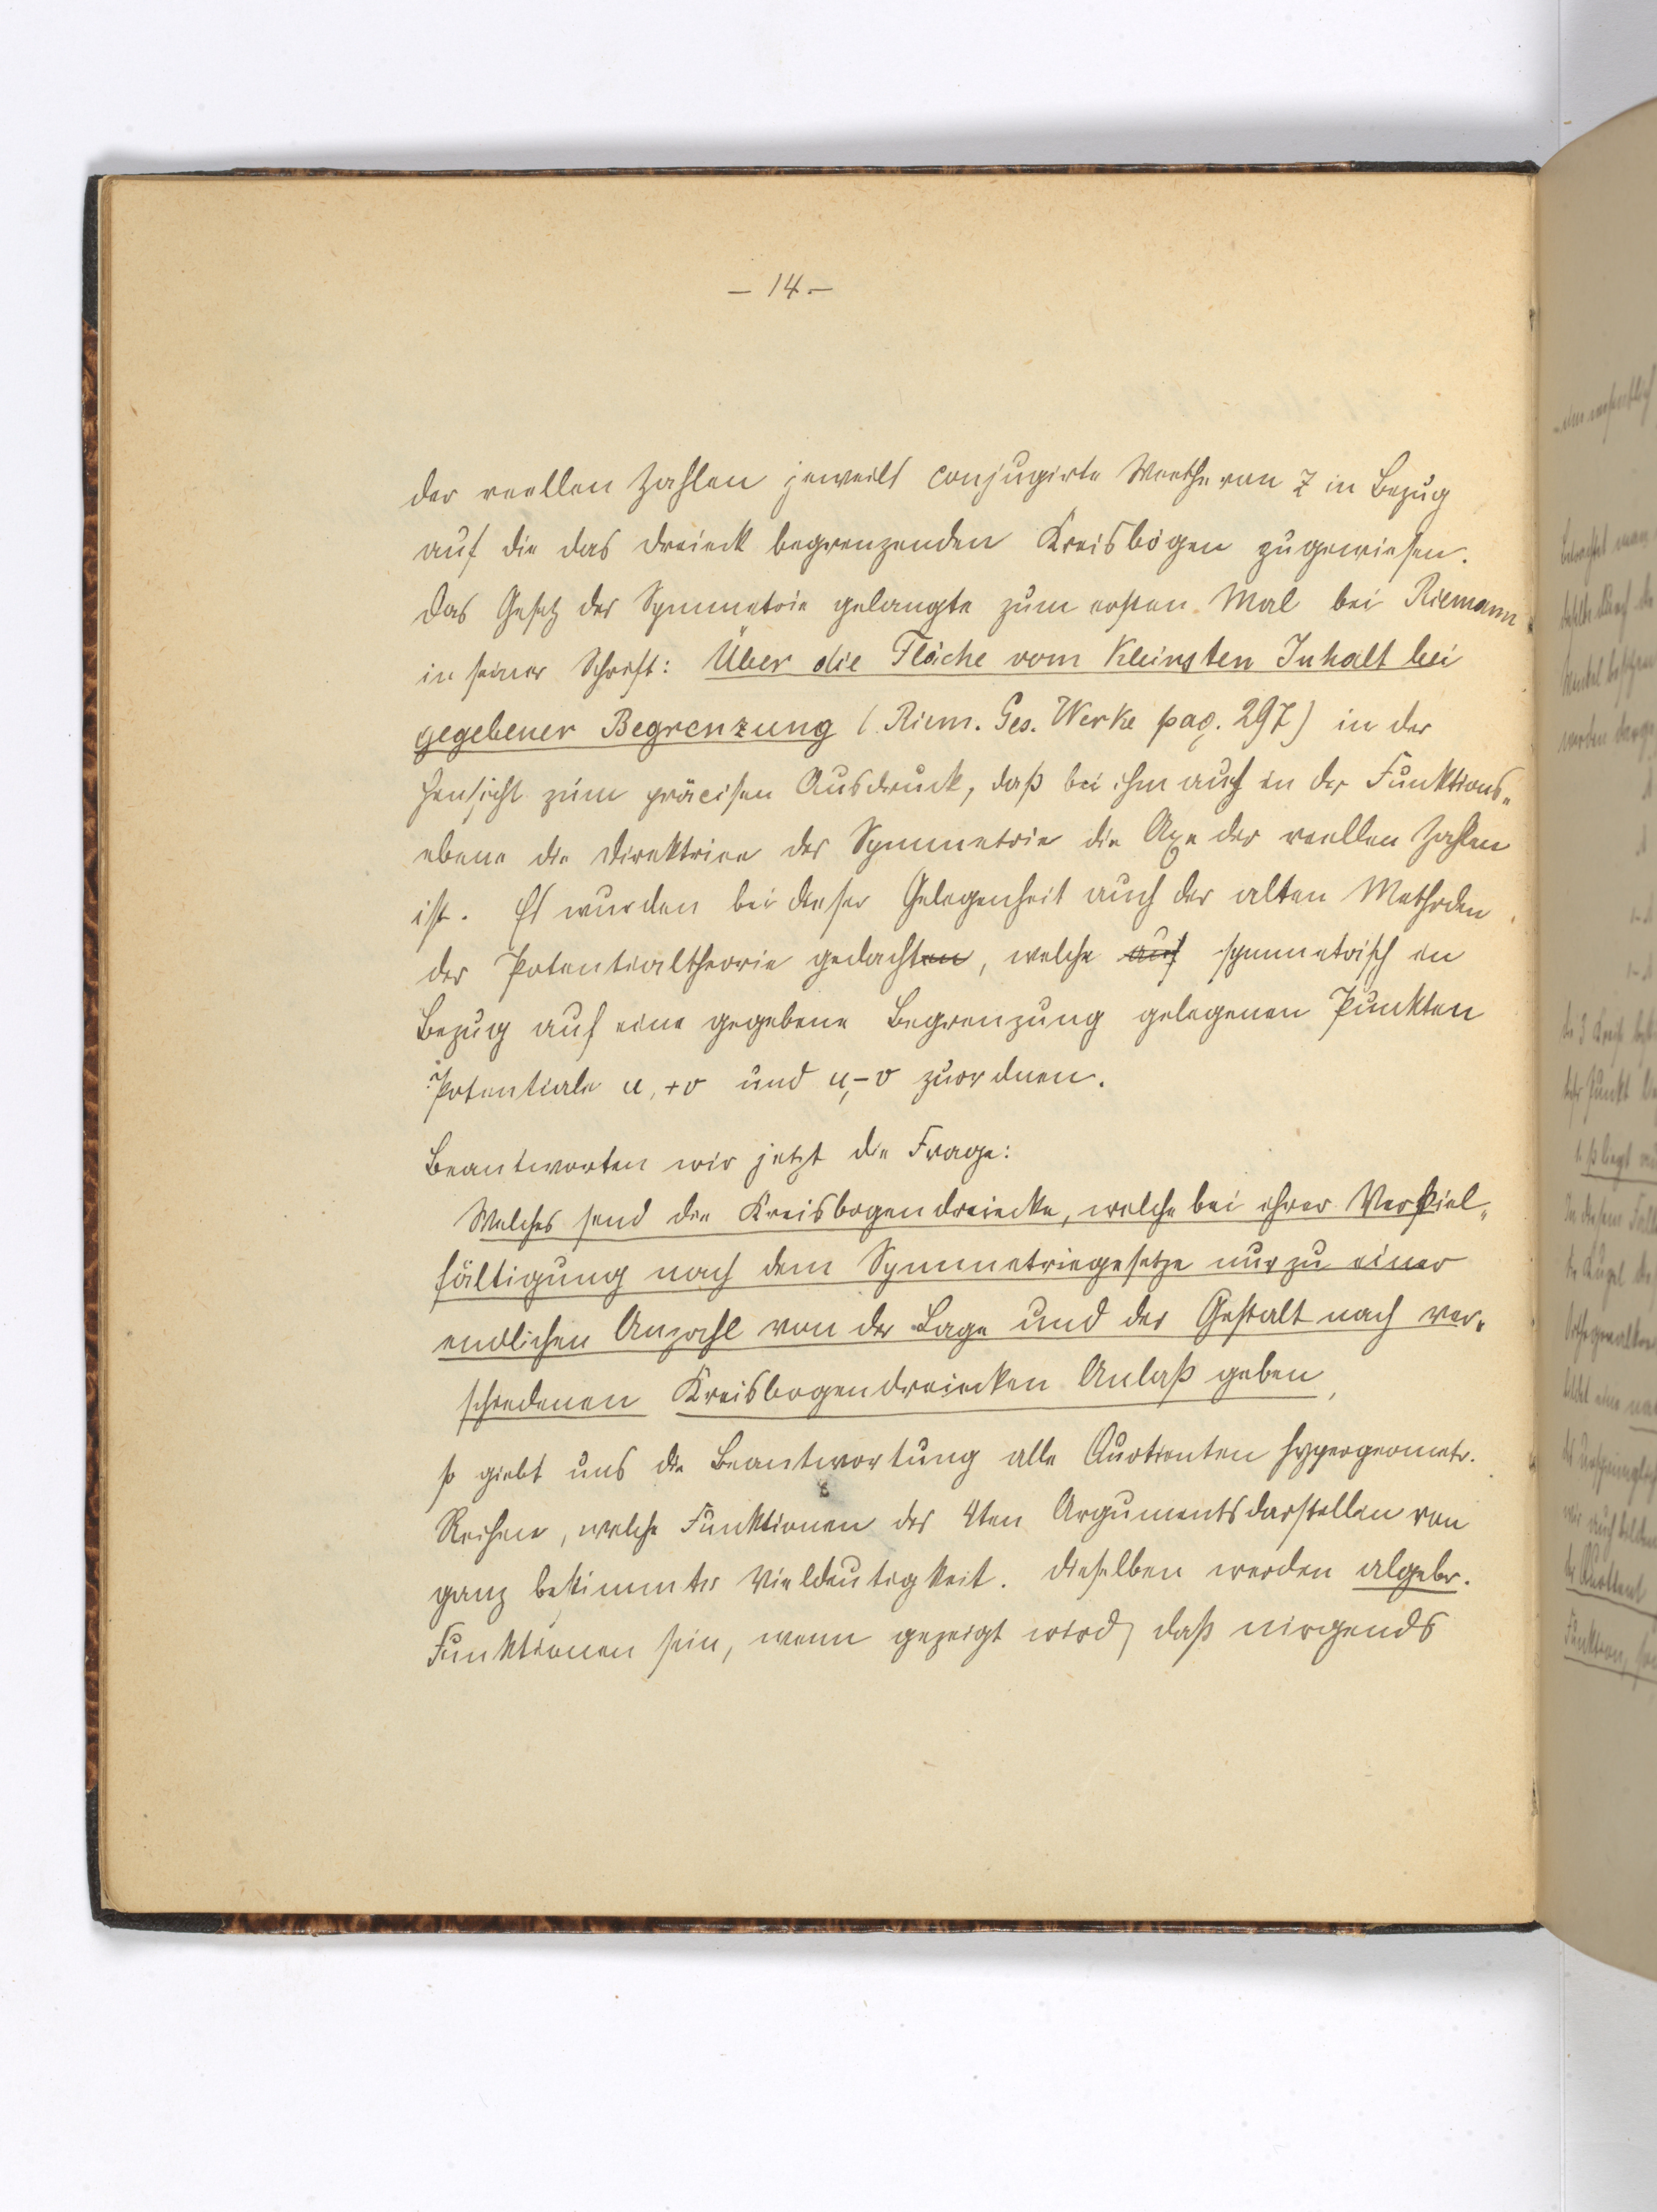 – 14. –
der reellen Zahlen jeweils conjugirte Werthe von z in Bezug
auf die das Dreieck begrenzenden Kreisbögen zugewiesen.
Das Gesetz der Symmetrie gelangte zum ersten Mal bei Riemann
in seiner Schrift: Über die Fläche vom Kleinsten Inhalt bei
gegebener Begrenzung (Riem. Ges. Werke pag. 297) in der
Hinsicht zum präcisen Ausdruck, daß bei ihm auch in der Funktions-
ebene die Direktrice der Symmetrie die Axe der reellen Zahlen
ist. Es wurden bei dieser Gelegenheit auch der alten Methoden
der Potentialtheorie gedachten, welche auf symmetrisch in
Bezug auf eine gegebene Begrenzung gelegenen Punkten
Potentiale u, +v und u, –v zuordnen.
Beantworten wir jetzt die Frage:
Welches sind die Kreisbogendreiecke, welche bei ihrer Verviel-
fältigung nach dem Symmetriegesetze nur zu einer
endlichen Anzahl von der Lage und der Gestalt nach ver-
schiedenen Kreisbogendreiecken Anlaß geben,
so giebt uns die Beantwortung alle Quotienten hypergeometr.
Reihen, welche Funktionen des 4ten Arguments darstellen von
ganz bestimmter Vieldeutigkeit. Dieselben werden algebr.
Funktionen sein, wenn gezeigt wird, daß nirgends